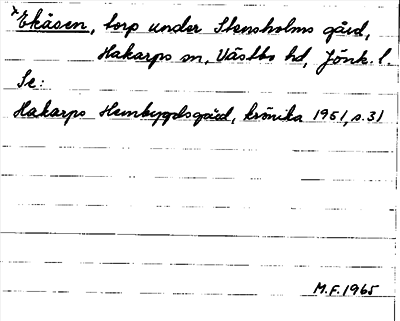 *Ekåsen, torp under Stensholms gård,
Hakarps sn, Västbo hd, Jönk. l.
Se:
Hakarps Hembygdsgård, krönika 1951, s. 31
M.F. 1965